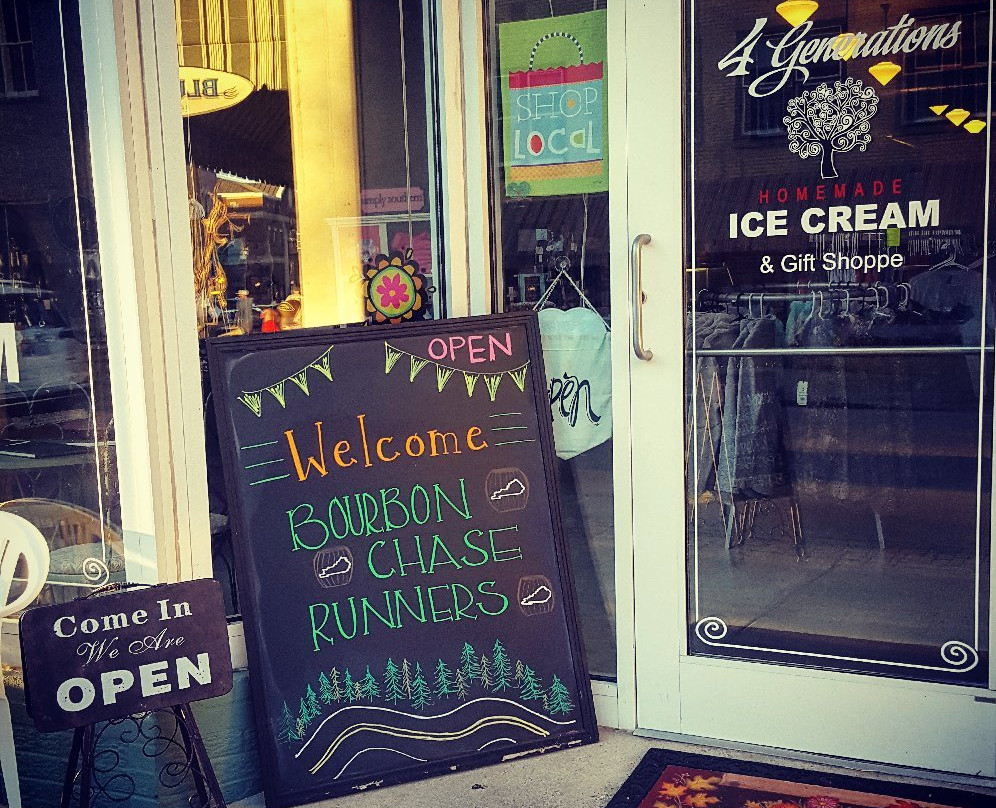 4 Generations
HOMEMADE
ICE CREAM
& Gift Shoppe
SHOP
LOCAL
simply southern
OPEN
Welcome
BOURBON
CHASE
RUNNERS
Come In
We Are
OPEN